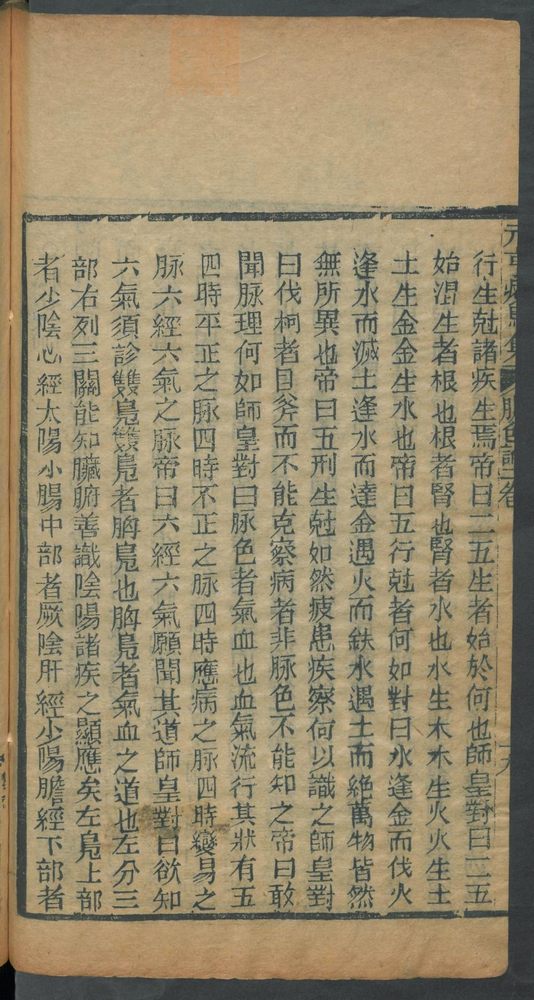 元亨療馬集 脉色證 卷
行生尅諸疾生焉帝曰二五生者始於何也師皇對曰二五
始涽生者根也根者腎也腎者水也水生木木生火火生土
土生金金生水也帝曰五行尅者何如對曰水逢金而伐火
逢水而滅土逢水而達金遇火而鈌水遇土而絶萬物皆然
無所異也帝曰五刑生尅如然疲患疾察何以識之師皇對
曰伐柯者目斧而不能克察病者非脉色不能知之帝曰敢
聞脉理何如師皇對曰脉色者氣血也血氣流行其狀有五
四時平正之脉四時不正之脉四時應病之脉四時變易之
脉六經六氣之脉帝曰六經六氣願聞其道師皇對曰欲知
六氣須診雙鳬雙鳬者胷鳬也胷鳬者氣血之道也左分三
部右列三關能知臟腑善識陰陽諸疾之顯應矣左鳬上部
者少陰心經太陽小腸中部者厥陰肝經少陽膽經下部者